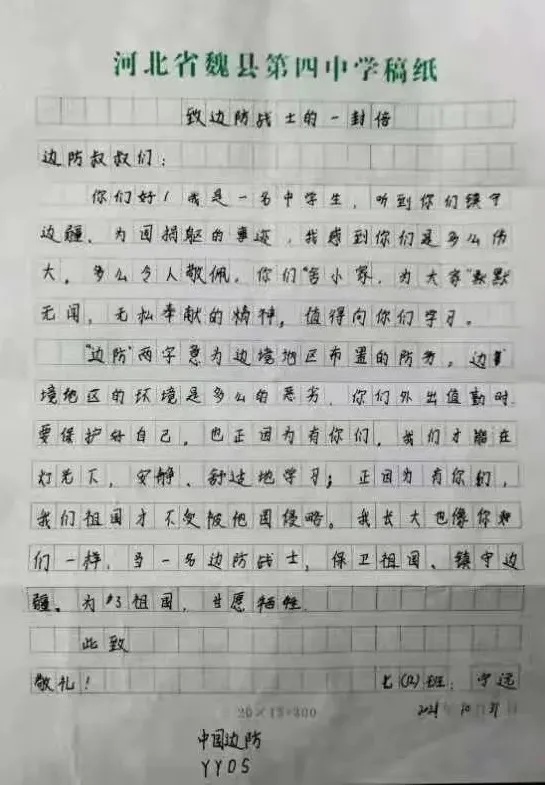 河北省魏县第四中学稿纸
致边防战士的一封信
边防叔叔们：
你们好！我是一名中学生，听到你们镇守
边疆、为国捐躯的事迹，我感到你们是多么伟
大，多么令人敬佩。你们“舍小家，为大家”默默
无闻，无私奉献的精神，值得向你们学习。
“边防”两字意为边境地区布置的防务，边
境地区的环境是多么的恶劣，你们外出值勤时
要保护好自己，也正因为有你们，我们才能在
灯光下，安静、舒适地学习；正因为有你们，
我们祖国才不受被他国侵略。我长大也像你
们一样，当一名边防战士，保卫祖国、镇守边
疆。为了祖国，甘愿牺牲
此致
敬礼！ 七(2)班：宁远
2021年10月31日
20×15=300
中国边防
YYDS